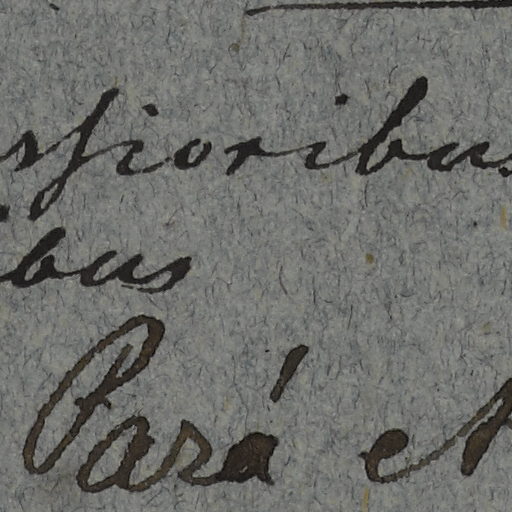 ssioribus
bus
Pará et